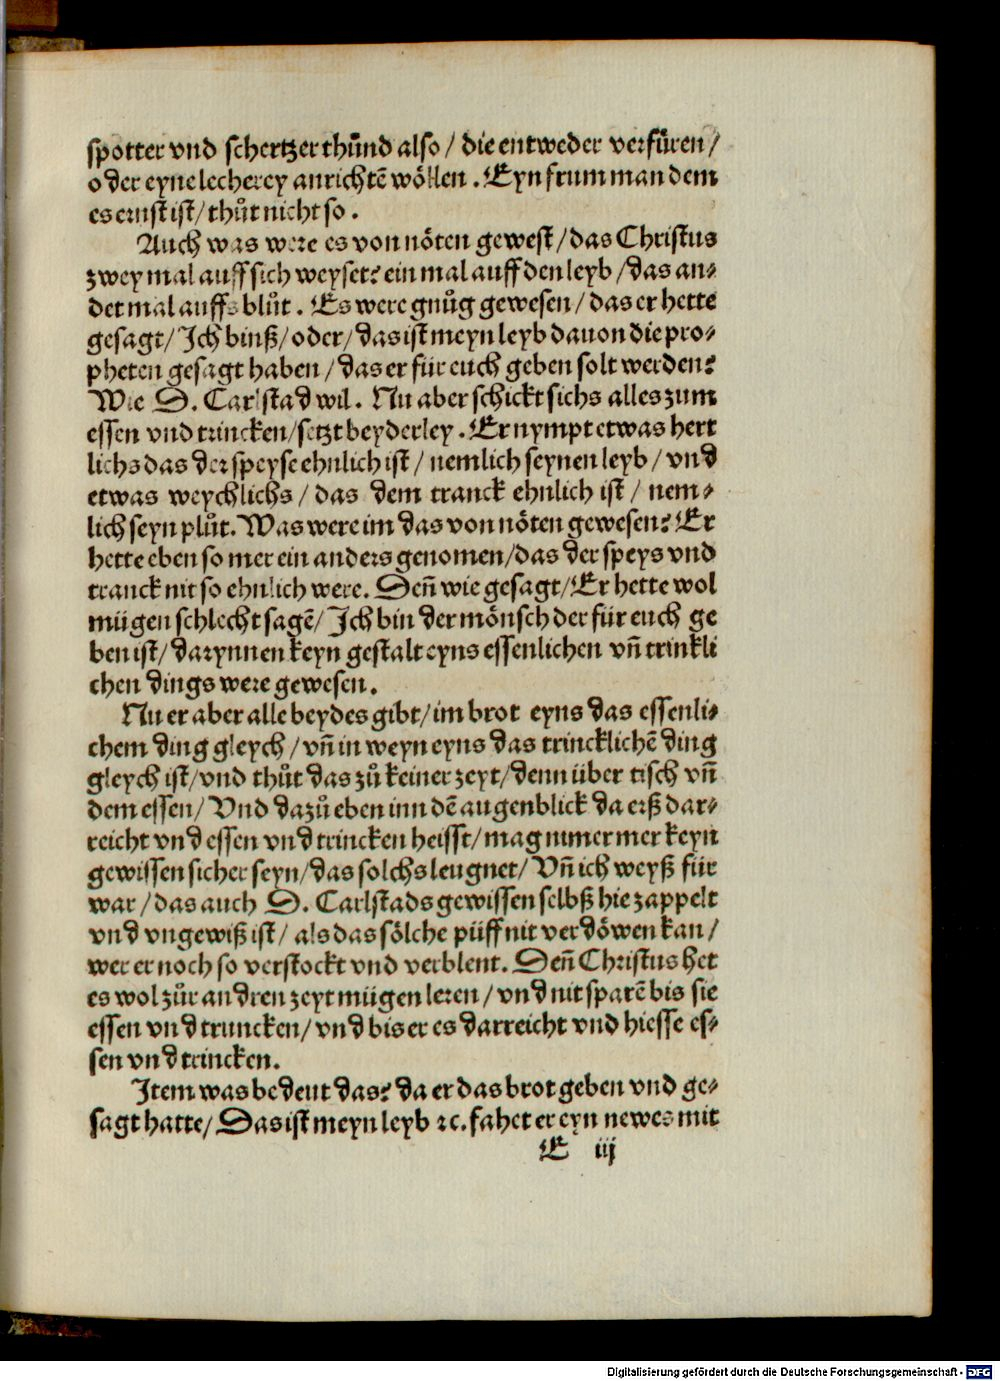 spotter vnd schertzer thůnd also / die entweder verfüren /
oder eyne lecherey anrichtē wöllen . Eyn frum man dem
es ernst ist / thůt nicht so .
Auch was were es von nöten gewest / das Christus
zwey mal auff sich weyset? ein mal auff den leyb / das an⸗
der mal auffs blůt . Es were gnůg gewesen / das er hette
gesagt / Ich binß / oder / das ist meyn leyb dauon die pro⸗
pheten gesagt haben / das er für euch geben solt werden?
Wie D. Carlstad wil . Nu aber schickt sichs alles zum
essen vnd trincken / setzt beyderley . Er nympt etwas hert
lichs das der speyse ehnlich ist / nemlich seynen leyb / vnd
etwas weychlichs / das dem tranck ehnlich ist / nem⸗
lich seyn plůt. Was were im das von nöten gewesen? Er
hette eben so mer ein anders genomen / das der speys vnd
tranck nit so ehnlich were. Deñ wie gesagt / Er hette wol
mügen schlecht sagē / Ich bin der mönsch der für euch ge
ben ist / darynnen keyn gestalt eyns essenlichen vñ trinkli
chen dings were gewesen .
Nu er aber alle beydes gibt / im brot eyns das essenli⸗
chem ding gleych / vñ in weyn eyns das trincklichē ding
gleych ist / vnd thůt das zů keiner zeyt / denn über tisch vñ
dem essen / Vnd dazů eben inn dē augenblick da erß dar⸗
reicht vnd essen vnd trincken heisst / mag nimer mer keyn
gewissen sicher seyn / das solchs leugnet / Vñ ich weyß für
war / das auch D. Carlstads gewissen selbß hie zappelt
vnd vngewiß ist / als das sölche püff nit verdöwen kan /
wer er noch so verstockt vnd verblent. Deñ Christus het
es wol zůr andren zeyt mügen leren / vnd nit sparē bis sie
essen vnd truncken / vnd bis er es darreicht vnd hiesse es⸗
sen vnd trincken.
Item was bedeut das? da er das brot geben vnd ge⸗
sagt hatte / Das ist meyn leyb ꝛc. fahet er eyn newes mit
E iij
Digitalisierung gefördert durch die Deutsche Forschungsgemeinschaft - DFG